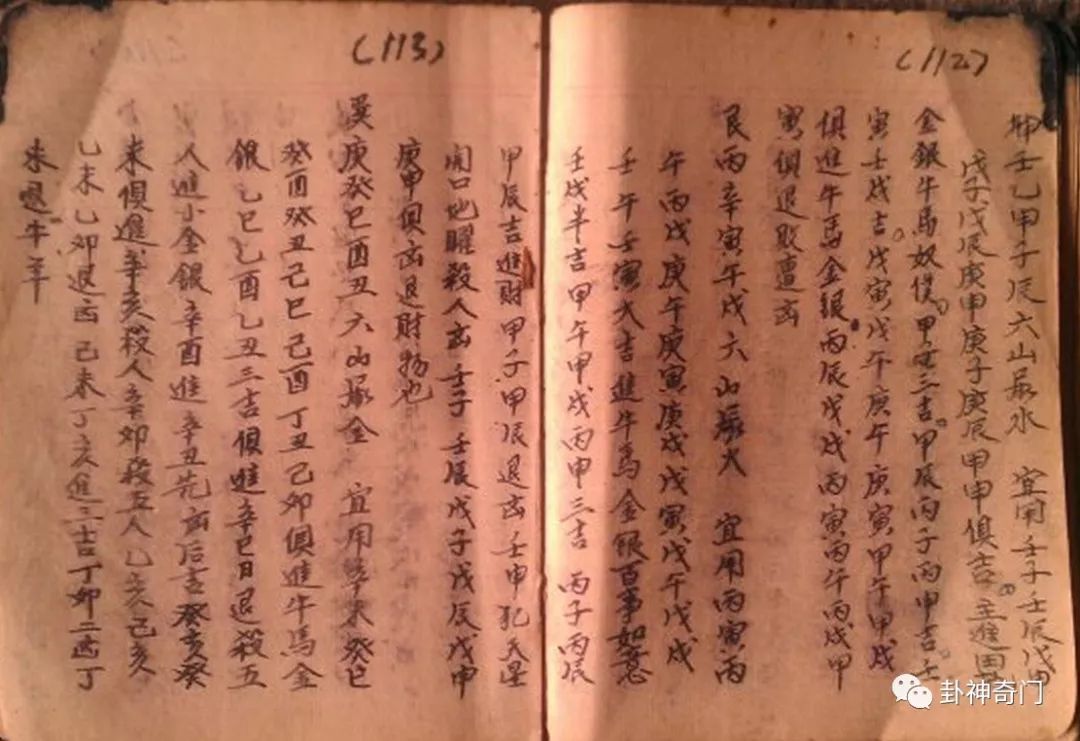 (112)
坤壬乙申子辰六山屬水 宜用壬子壬辰戊申
戊子戊辰庚申庚子庚辰甲申俱吉主進田
金銀牛馬奴僕甲子三吉甲辰丙子丙申吉壬
寅壬戌吉戊寅戊午庚午庚寅甲午甲戌
俱進牛馬金銀丙辰戊戌丙寅丙午丙戌甲
寅俱退敗遭凶
艮丙辛寅午戌六山屬火 宜用丙寅丙
午丙戌庚午庚寅庚戌戊寅戊午戊戌
壬午壬寅大吉進牛馬金銀百事如意
壬戌半吉甲午甲戌丙申三吉 丙子丙辰
(113)
甲辰吉進財甲子甲辰退凶壬申犯天星
開口地曜殺人凶壬子壬辰戊子戊辰戊申
庚申俱凶退財物也
巽庚癸巳酉丑六山屬金 宜用辛未癸巳
癸酉癸丑己巳己酉丁丑己卯俱進牛馬金
銀乙巳乙酉乙丑三吉俱進辛巳日退殺五
人進小金銀辛酉進辛丑先凶后吉癸亥癸
未俱進辛亥殺人辛卯殺五人乙亥己亥
乙未乙卯退凶己未丁亥進三吉丁卯二凶丁
未退牛羊
卦神奇门